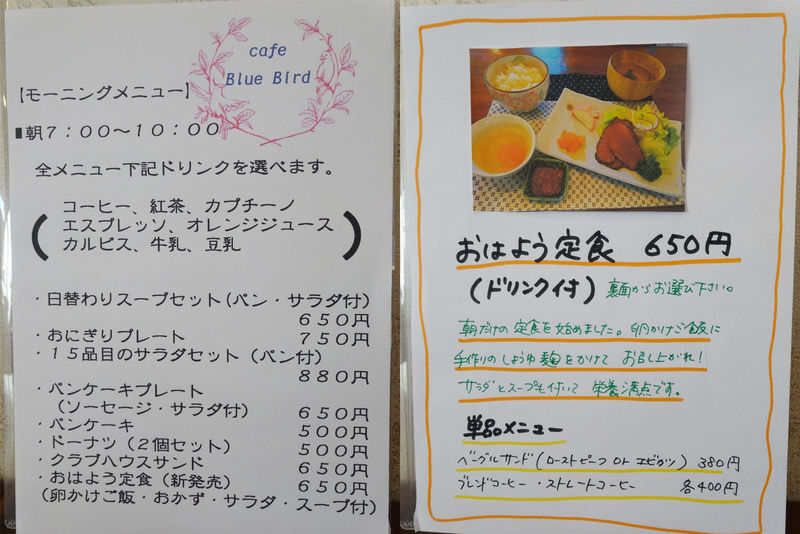 cafe
Blue Bird
【モーニングメニュー】
■朝7：00～10：00
全メニュー下記ドリンクを選べます。
（コーヒー、紅茶、カプチーノ
エスプレッソ、オレンジジュース
カルピス、牛乳、豆乳）
・日替わりスープセット(パン・サラダ付)
650円
・おにぎりプレート 750円
・15品目のサラダセット（パン付）
880円
・パンケーキプレート
（ソーセージ・サラダ付） 650円
・パンケーキ 500円
・ドーナツ（2個セット） 500円
・クラブハウスサンド 650円
・おはよう定食（新発売） 650円
(卵かけご飯・おかず・サラダ・スープ付)
おはよう定食 650円
（ドリンク付）裏面からお選び下さい。
朝だけの定食を始めました。卵かけご飯に
手作りのしょうゆ麹をかけて お召し上がれ！
サラダとスープも付いて 栄養満点です。
単品メニュー
ベーグルサンド（ローストビーフ or エビカツ） 380円
ブレンドコーヒー・ストレートコーヒー 各400円